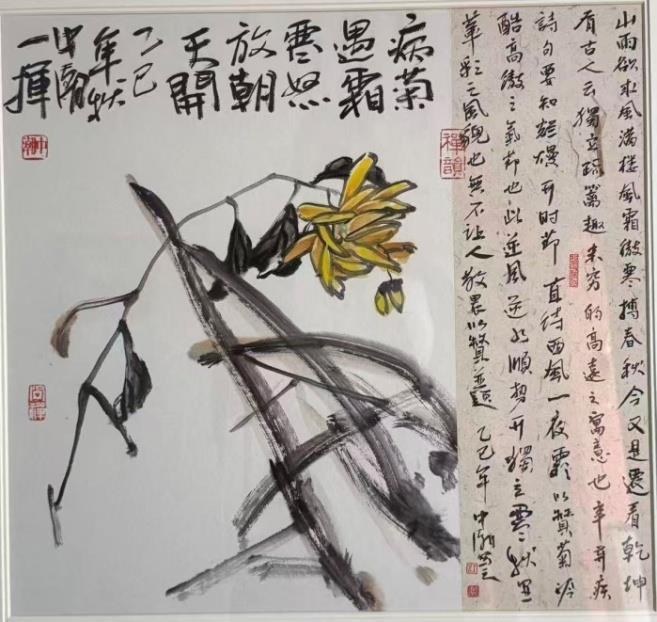 病菊
遇霜
寒怒
放朝
天開
乙巳
年秋
中瀚
一揮
禪韻
山雨欲來風滿樓風霜傲寒搏春秋今又是還看乾坤
看古人云獨立疏籬趣未窮的高遠之寓意也辛棄疾
詩句要知爛熳開時節直待西風一夜霜以贊菊
酷高傲之氣節也此逆風逆水順勢開獨立寒秋
華彩之風貌也無不讓人敬畏以贊並題 乙巳年